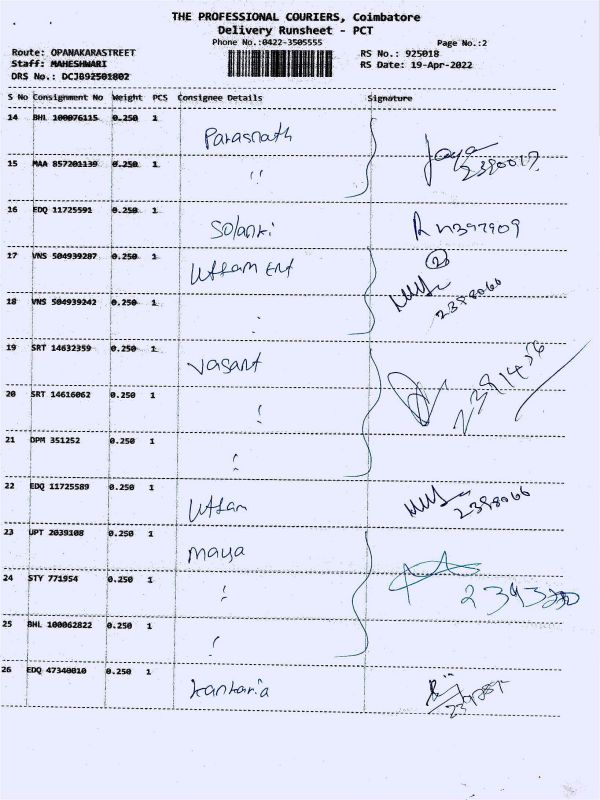 THE PROFESSIONAL COURIERS, Coimbatore
Delivery Runsheet - PCT
Phone No.:0422-3505555 Page No.:2
Route: OPANAKARASTREET RS No.: 925018
Staff: MAHESHWARI RS Date: 19-Apr-2022
DRS No.: DCJB92501802
S No Consignment No Weight PCS Consignee Details Signature
14 BHL 100076115 0.250 1 Parasnath
15 MAA 857201139 0.250 1 " Jaya 2390017
16 EDQ 11725591 0.250 1 Solanki
17 VNS 504939287 0.250 1 Uttam Ent 2
18 VNS 504939242 0.250 1 " 2398066
19 SRT 14632359 0.250 1 Vasant
20 SRT 14616062 0.250 1 " 2391436
21 DPM 351252 0.250 1 "
22 EDQ 11725589 0.250 1 Uttam 2398066
23 UPT 2039108 0.250 1 Maya
24 STY 771954 0.250 1 "
25 BHL 100062822 0.250 1 "
26 EDQ 47340010 0.250 1 Kankaria